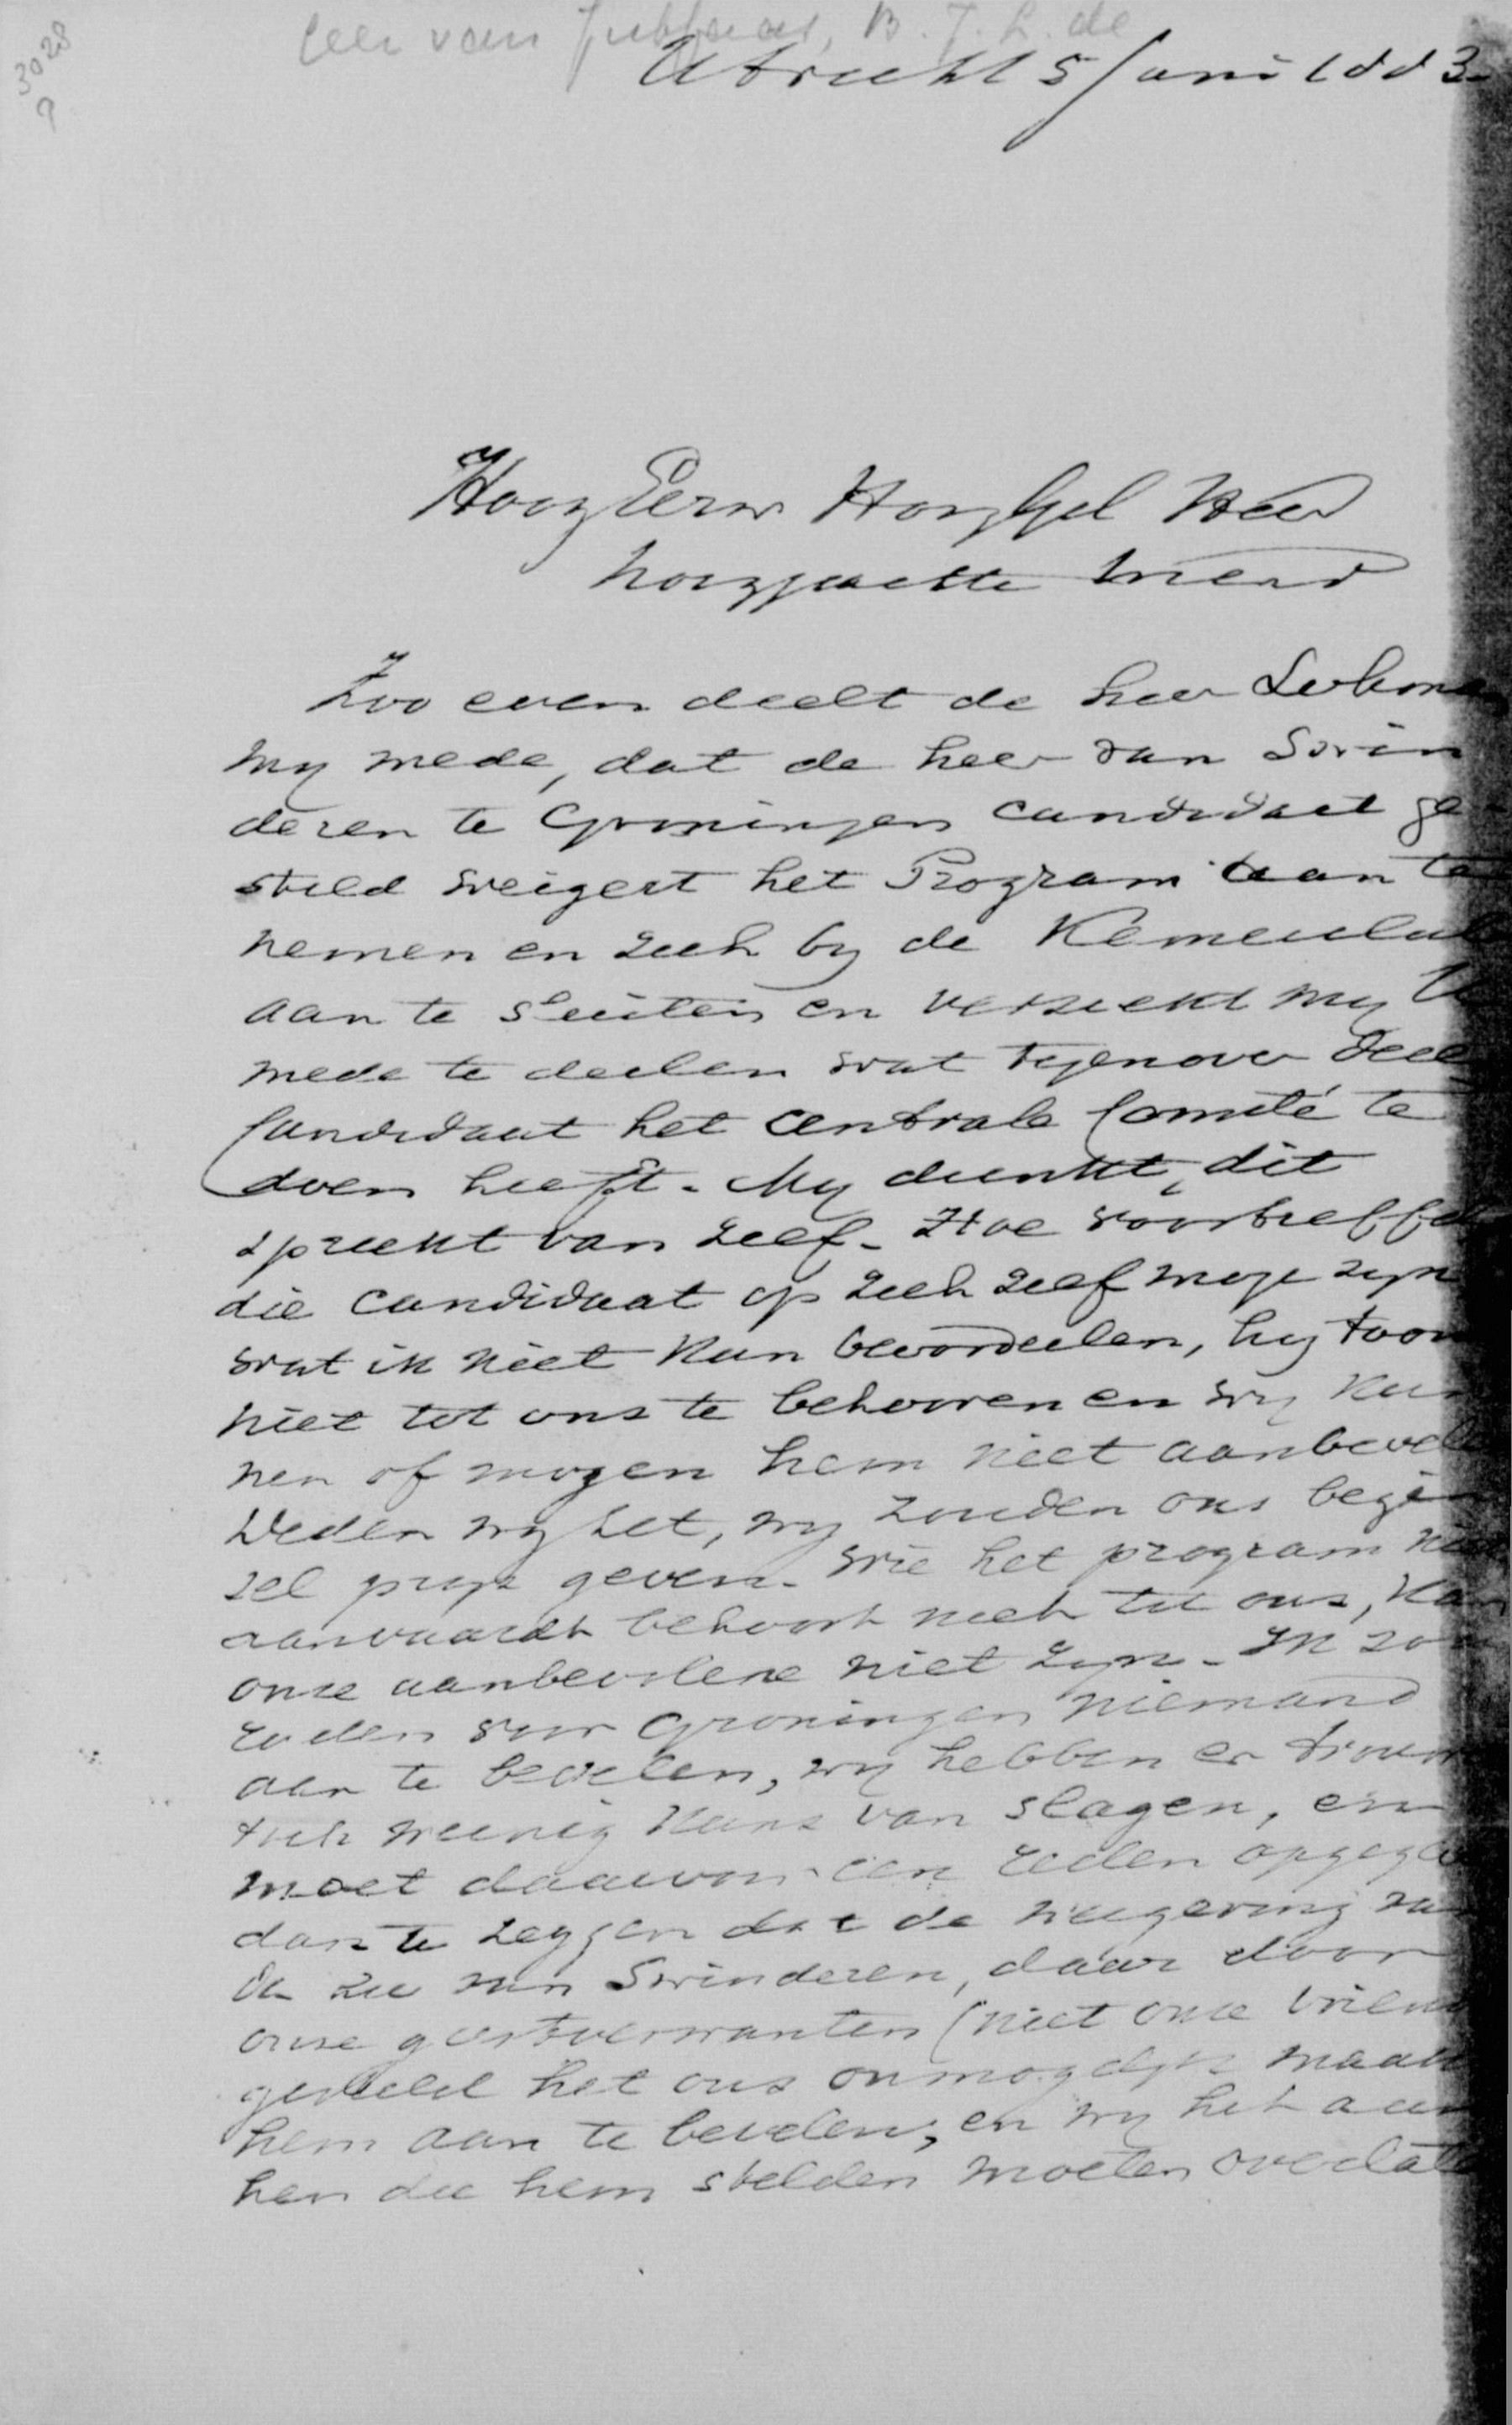 3028
Geer van Jutfaas, B. J. L. de
Utrecht 5 Juni 1883
HoogEerw HoogGel Heer
hooggeachte vriend
Zoo even deelt de heer Lohman
my mede, dat de heer van Swin
deren te Groningen candidaat ge
steld weigert het Program aan te
nemen en zich by de Kamerclub
aan te sluiten en verzoekt my U
mede te deelen wat tegenover deze
Candidaat het Centrale Comité te
doen heeft. My dunkt, dit
spreekt van zelf. Hoe voortreffel
die candidaat op zich zelf moge zyn
wat ik niet kan beoordeelen, hy toon
niet tot ons te behooren en wy kun
nen of mogen hem niet aanbevele
Deden wy het, wy zouden ons begin
sel prys geven. Wie het program niet
aanvaardt behoort niet tot ons, kan
onze aanbevolene niet zyn. Ik zou
raden voor Groningen niemand
aan te bevelen, wy hebben er trouwens
toch weinig kans van slagen, en
moet daarvoor een reden opgegeven
dan te zeggen dat de weigering van
de heer van Swinderen, daar door
onze geestverwanten (niet onze vriend
gesteld het ons onmogelyk maakt
hem aan te bevelen, en wy het aan
hen die hem stelden moeten overlate